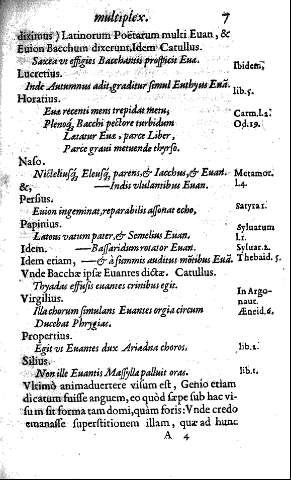 multiplex. 7
diximus) Latinorum Poëtarum multi Euan, &
Euion Bacchum dixerunt. Idem Catullus.
Saxea vt effigies Bacchantis prospicit Euæ. Ibidem,
Lucretius.
Inde Autumnus adit, graditur simul Euthyus Euã. lib.5.
Horatius.
Euæ recenti mens trepidat metu, Carm.l.2.
Plenoq́; Bacchi pectore turbidum Od.19.
Lætatur Euæ, parce Liber,
Parce graui metuende thyrso.
Naso.
Nictileiusq́;, Eleusq́; parens, & Iacchus, & Euan. Metamor.
&, —Indis vlulatibus Euan. l.4.
Persius.
Euion ingeminat, reparabilis assonat echo, Satyra 1.
Papinius.
Latous vatum pater, & Semelius Euan. Syluarum l.1.
Idem. —Bassaridum rotator Euan. Syluar.2.
Idem etiam, —& à summis auditus mõtibus Euã. Thebaid.5.
Vnde Bacchæ ipsæ Euantes dictæ. Catullus.
Thyadas effusis euantes crinibus egit. In Argo-
Virgilius. naut.
Illa chorum simulans Euantes orgia circum Æneid.6.
Ducebat Phrygias.
Propertius.
Egit vt Euantes dux Ariadna choros. lib.2.
Silius.
Non ille Euantis Massylla palluit oras. lib.1.
Vltimò animaduertere visum est, Genio etiam
dicatum fuisse anguem, eo quòd sæpe sub hac vi-
su m sit forma tam domi, quàm foris: Vnde credo
emanasse superstitionem illam, quæ ad hunc
A 4